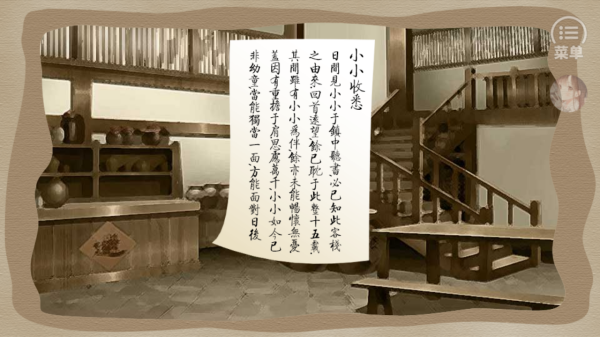 小小收悉
日間見小小于鎮中聽書必已知此客棧
之由來回首遠望餘已耽于此整十五載
其間雖有小小為伴餘亦未能暢懷無憂
蓋因有重擔于肩思慮萬千小小如今已
非幼童當能獨當一面方能面對日後
菜单